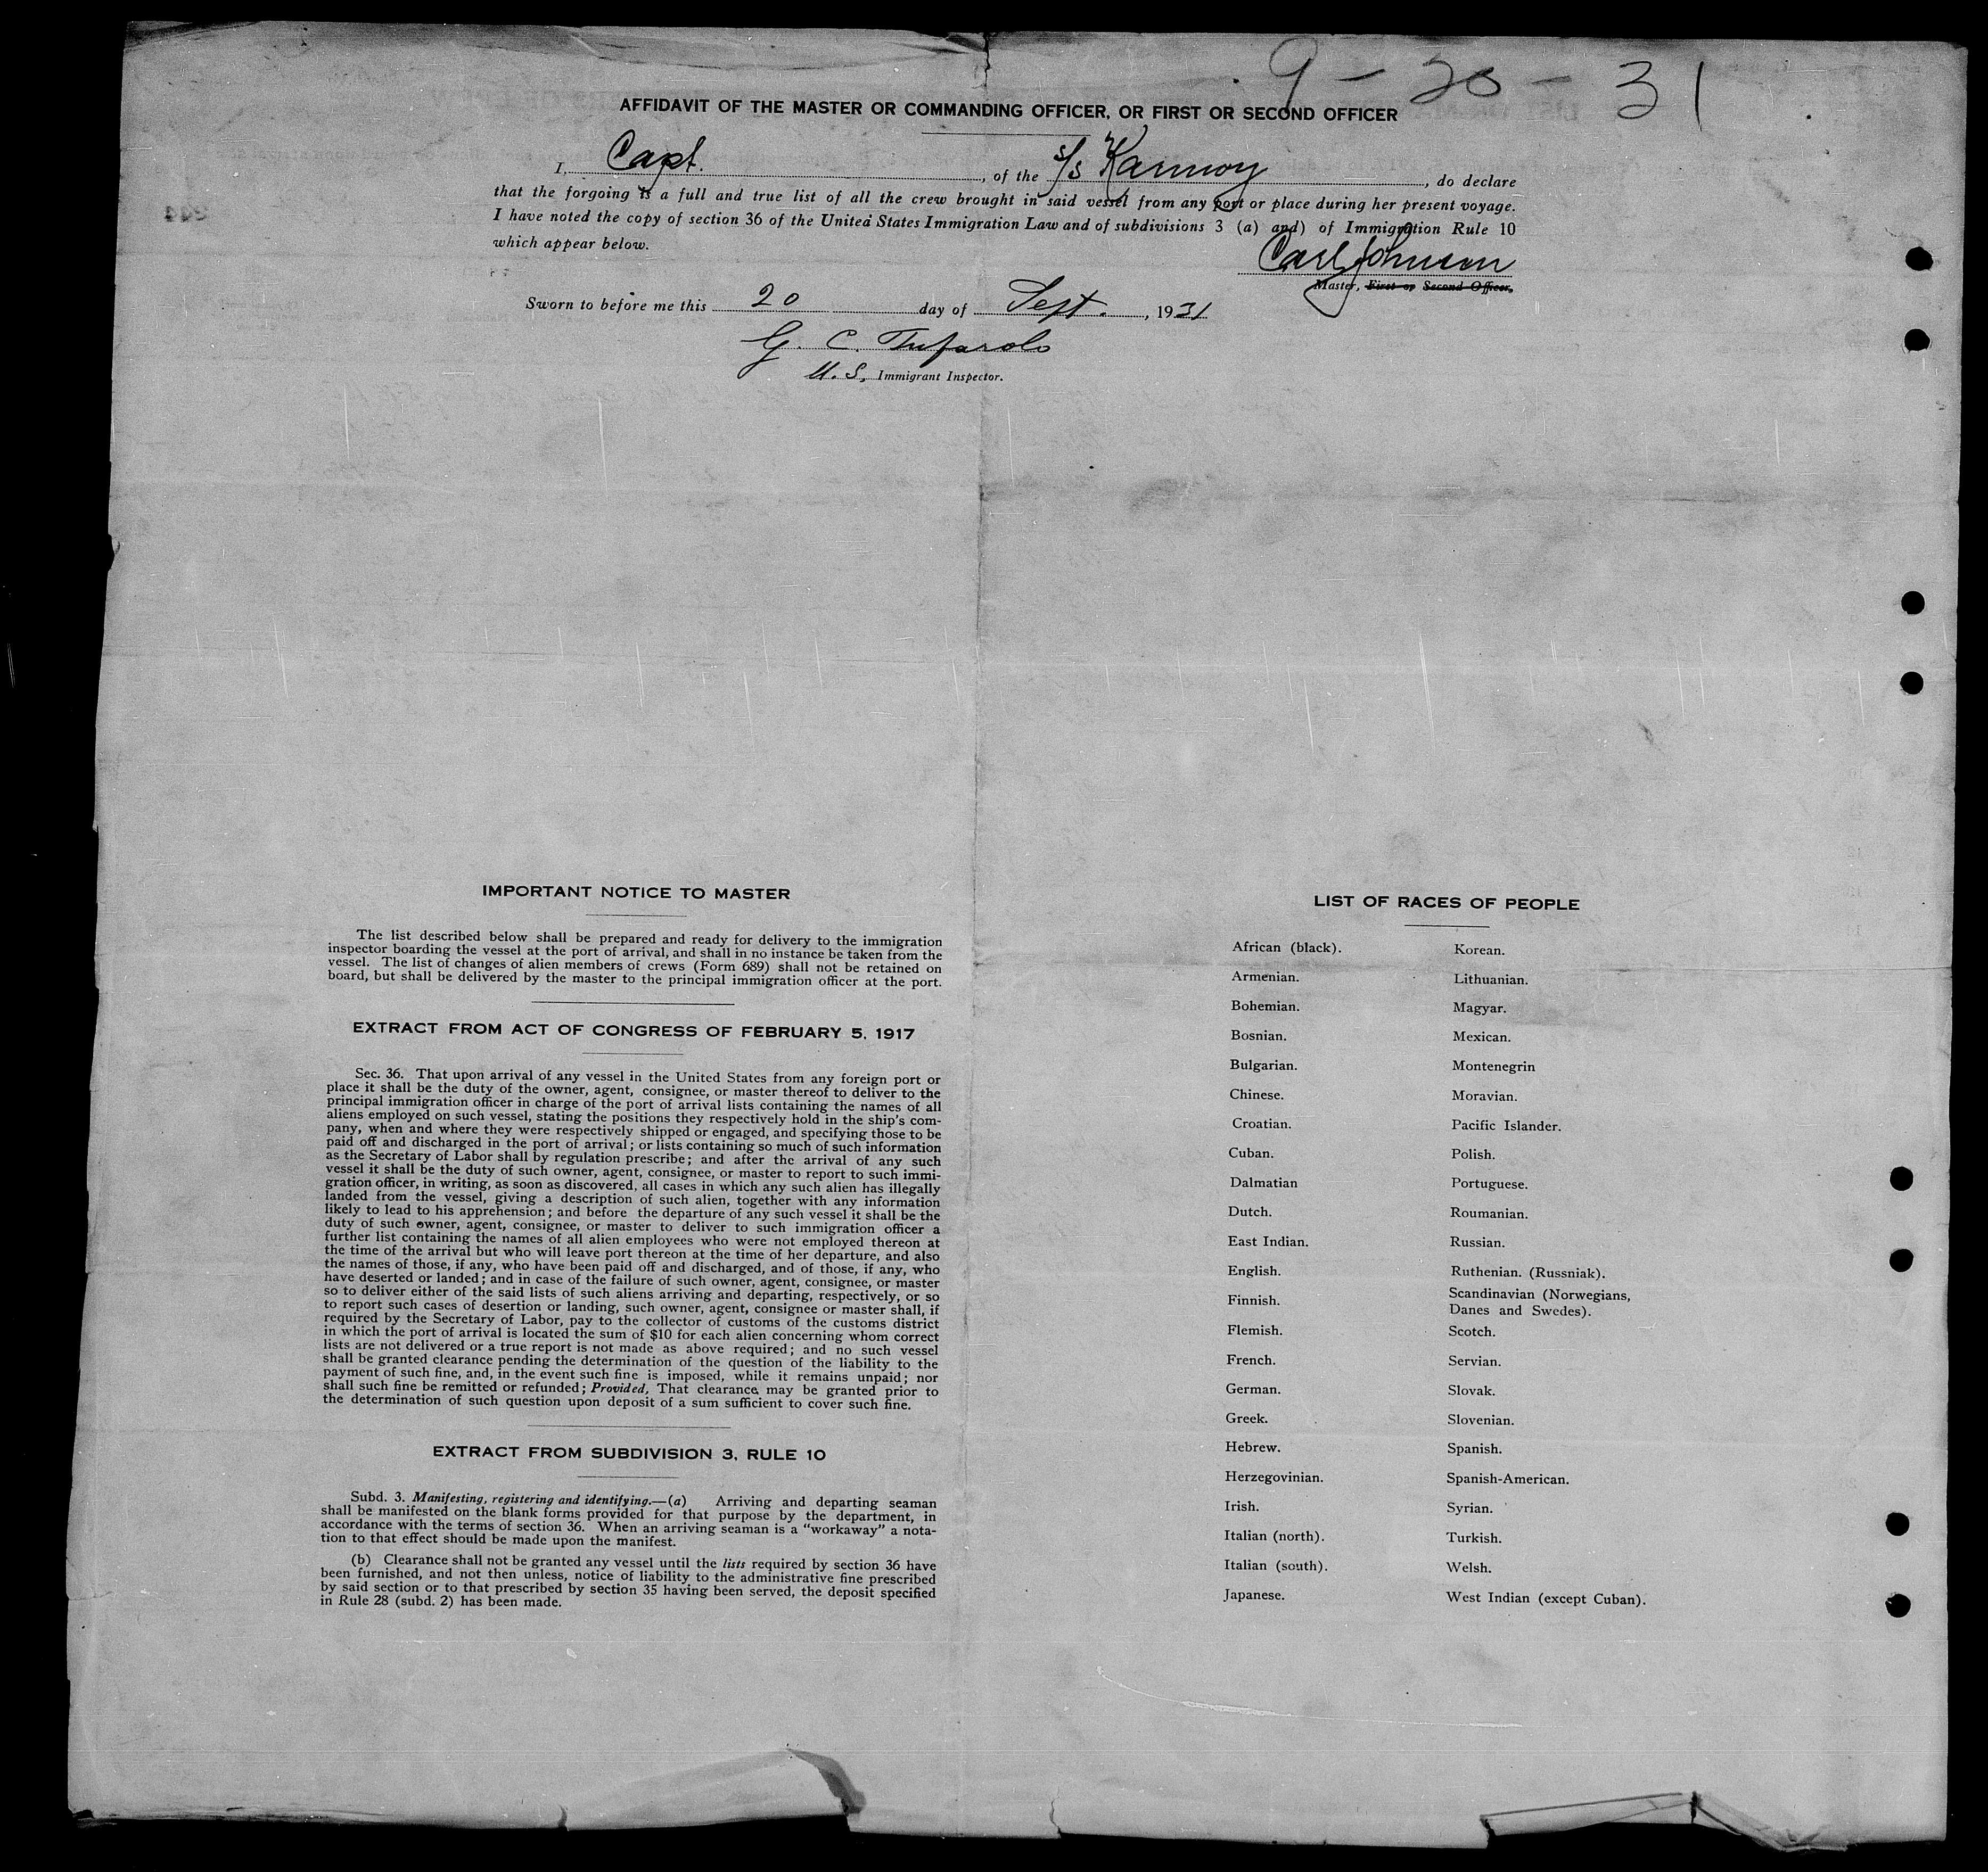 9 - 20 - 31
AFFIDAVIT OF THE MASTER OR COMMANDING OFFICER, OR FIRST OR SECOND OFFICER
I, Capt. , of the S/S Karmoy , do declare
that the forgoing is a full and true list of all the crew brought in said vessel from any port or place during her present voyage.
I have noted the copy of section 36 of the United States Immigration Law and of subdivisions 3 (a) and) of Immigration Rule 10
which appear below.
Carl Johnsen
Master, First or Second Officer.
Sworn to before me this 20 day of Sept. , 1931
G. C. Tufarolo
U. S. Immigrant Inspector.
IMPORTANT NOTICE TO MASTER
The list described below shall be prepared and ready for delivery to the immigration
inspector boarding the vessel at the port of arrival, and shall in no instance be taken from the
vessel. The list of changes of alien members of crews (Form 689) shall not be retained on
board, but shall be delivered by the master to the principal immigration officer at the port.
EXTRACT FROM ACT OF CONGRESS OF FEBRUARY 5, 1917
Sec. 36. That upon arrival of any vessel in the United States from any foreign port or
place it shall be the duty of the owner, agent, consignee, or master thereof to deliver to the
principal immigration officer in charge of the port of arrival lists containing the names of all
aliens employed on such vessel, stating the positions they respectively hold in the ship's com-
pany, when and where they were respectively shipped or engaged, and specifying those to be
paid off and discharged in the port of arrival; or lists containing so much of such information
as the Secretary of Labor shall by regulation prescribe; and after the arrival of any such
vessel it shall be the duty of such owner, agent, consignee, or master to report to such immi-
gration officer, in writing, as soon as discovered, all cases in which any such alien has illegally
landed from the vessel, giving a description of such alien, together with any information
likely to lead to his apprehension; and before the departure of any such vessel it shall be the
duty of such owner, agent, consignee, or master to deliver to such immigration officer a
further list containing the names of all alien employees who were not employed thereon at
the time of the arrival but who will leave port thereon at the time of her departure, and also
the names of those, if any, who have been paid off and discharged, and of those, if any, who
have deserted or landed; and in case of the failure of such owner, agent, consignee, or master
so to deliver either of the said lists of such aliens arriving and departing, respectively, or so
to report such cases of desertion or landing, such owner, agent, consignee or master shall, if
required by the Secretary of Labor, pay to the collector of customs of the customs district
in which the port of arrival is located the sum of $10 for each alien concerning whom correct
lists are not delivered or a true report is not made as above required; and no such vessel
shall be granted clearance pending the determination of the question of the liability to the
payment of such fine, and, in the event such fine is imposed, while it remains unpaid; nor
shall such fine be remitted or refunded; Provided, That clearance may be granted prior to
the determination of such question upon deposit of a sum sufficient to cover such fine.
EXTRACT FROM SUBDIVISION 3, RULE 10
Subd. 3. Manifesting, registering and identifying.—(a) Arriving and departing seaman
shall be manifested on the blank forms provided for that purpose by the department, in
accordance with the terms of section 36. When an arriving seaman is a "workaway" a nota-
tion to that effect should be made upon the manifest.
(b) Clearance shall not be granted any vessel until the lists required by section 36 have
been furnished, and not then unless, notice of liability to the administrative fine prescribed
by said section or to that prescribed by section 35 having been served, the deposit specified
in Rule 28 (subd. 2) has been made.
LIST OF RACES OF PEOPLE
African (black).
Armenian.
Bohemian.
Bosnian.
Bulgarian.
Chinese.
Croatian.
Cuban.
Dalmatian
Dutch.
East Indian.
English.
Finnish.
Flemish.
French.
German.
Greek.
Hebrew.
Herzegovinian.
Irish.
Italian (north).
Italian (south).
Japanese.
Korean.
Lithuanian.
Magyar.
Mexican.
Montenegrin
Moravian.
Pacific Islander.
Polish.
Portuguese.
Roumanian.
Russian.
Ruthenian. (Russniak).
Scandinavian (Norwegians,
Danes and Swedes).
Scotch.
Servian.
Slovak.
Slovenian.
Spanish.
Spanish-American.
Syrian.
Turkish.
Welsh.
West Indian (except Cuban).